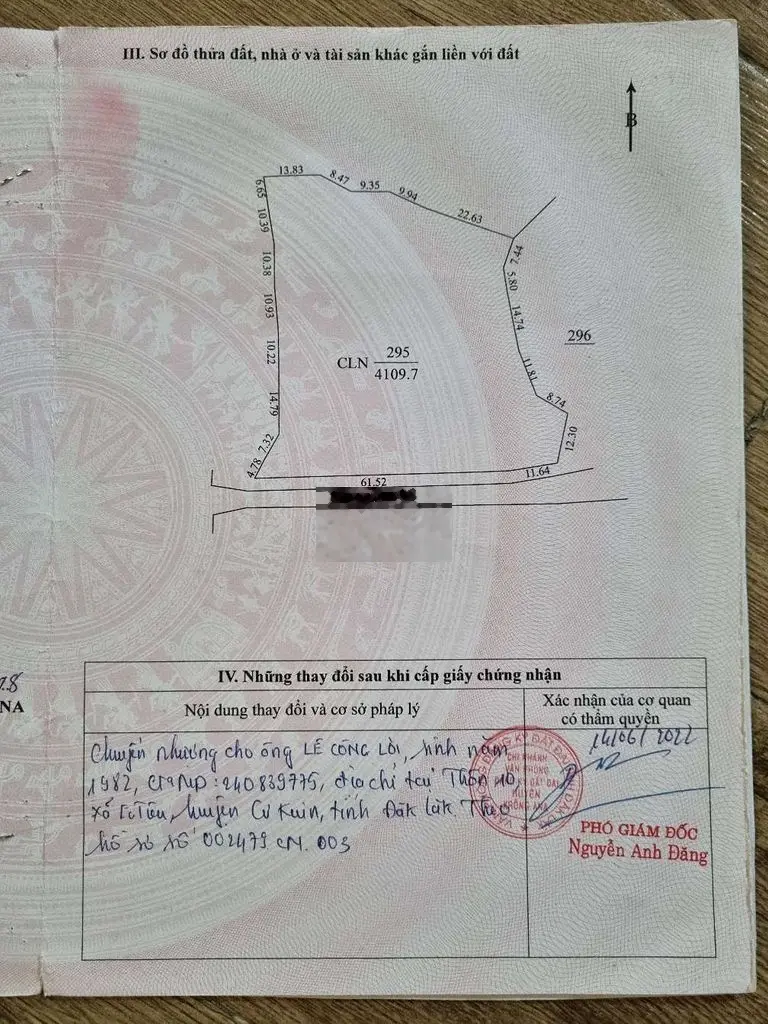 III. Sơ đồ thửa đất, nhà ở và tài sản khác gắn liền với đất
B
13.83
8.47
9.35
9.94
22.63
6.65
10.39
10.38
10.93
10.22
14.79
7.32
4.78
7.44
5.80
14.74
11.81
8.74
12.30
11.64
61.52
CLN 295
4109.7
296
NA
IV. Những thay đổi sau khi cấp giấy chứng nhận
Nội dung thay đổi và cơ sở pháp lý
Xác nhận của cơ quan
có thẩm quyền
Chuyển nhượng cho ông LÊ CÔNG LỢI, sinh năm
1982, CMND: 240839775, địa chỉ tại Thôn 10
xã huyện Cư Kuin, tỉnh Đăk Lăk. Theo
hồ sơ số 002479 CN. 003
14/06/2022
CHI NHÁNH
VĂN PHÒNG
ĐĂNG KÝ ĐẤT ĐAI
HUYỆN
KRÔNG ANA
PHÓ GIÁM ĐỐC
Nguyễn Anh Đăng